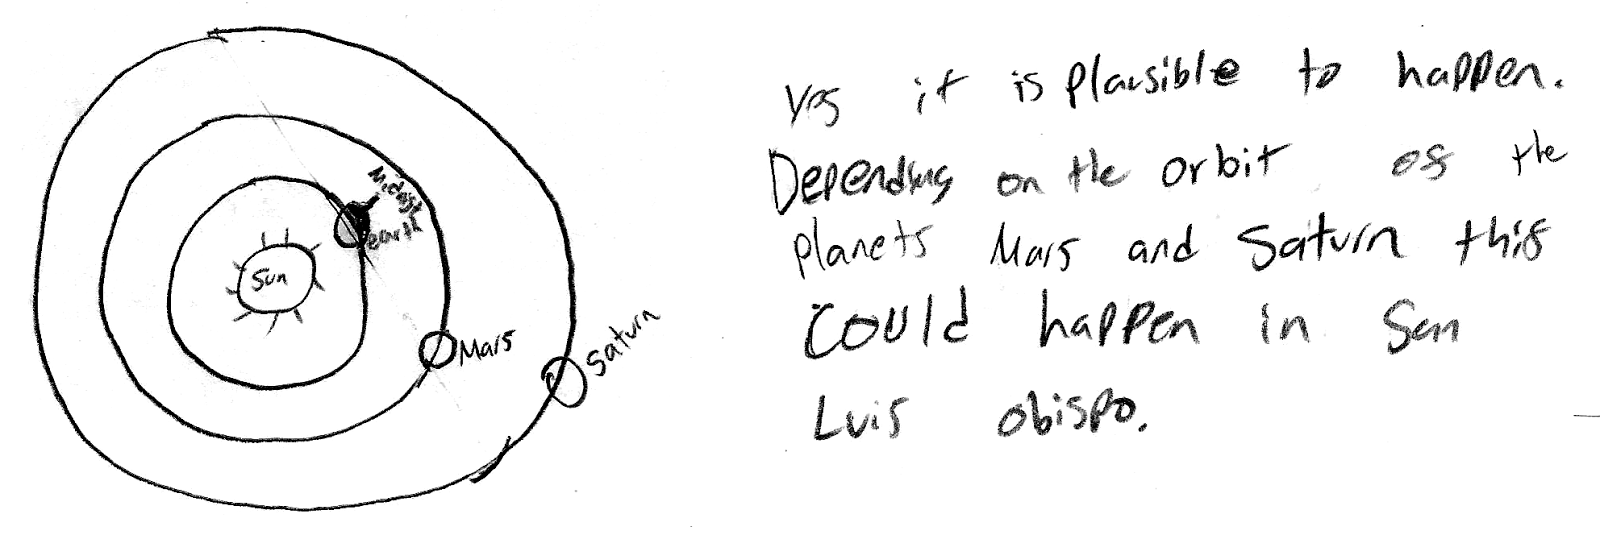 Midnight
earth
Sun
Mars
Saturn
Yes it is plausible to happen.
Depending on the orbit of the
planets Mars and Saturn this
could happen in San
Luis obispo.